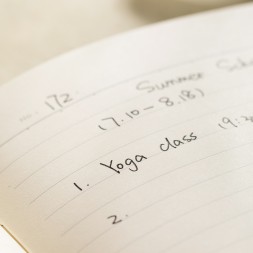 172
Summer
(7.10 - 8.18)
1. Yoga class
2.